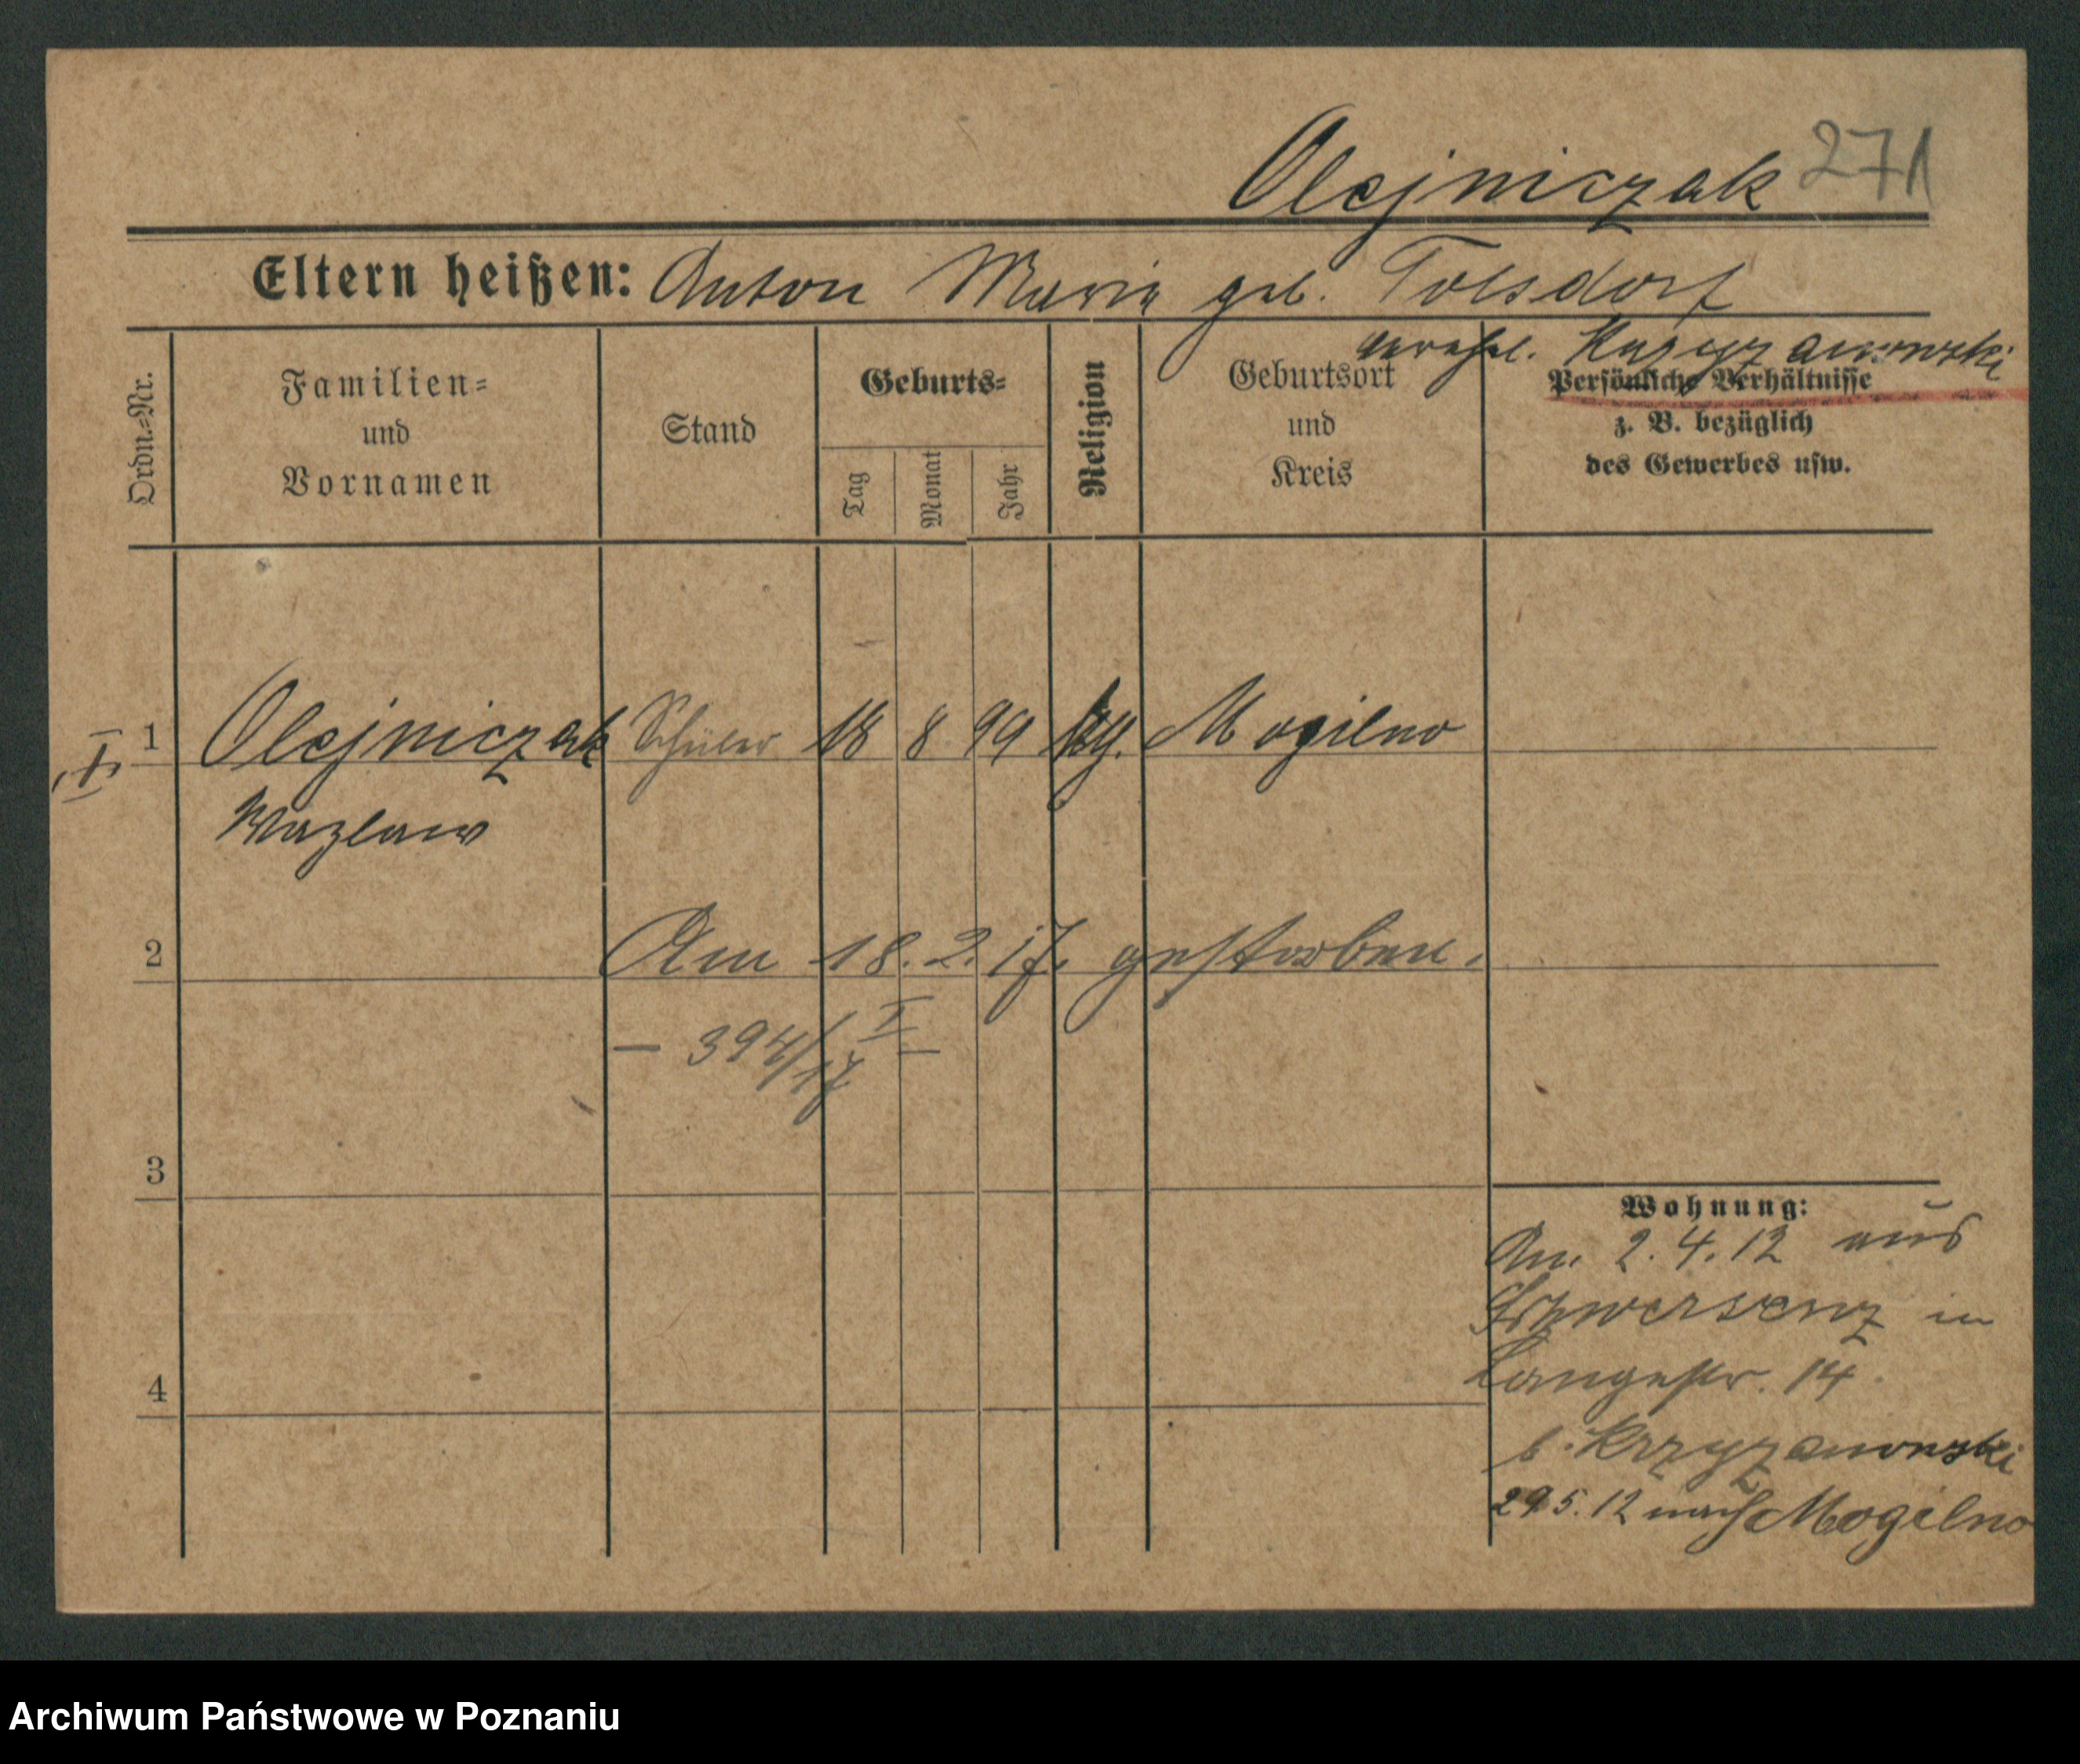 Olejniczak 271
Eltern heißen: Anton Maria geb. Tolsdorf
verehel. Krzyzanowski
Ordn.-Nr.
Familien-
und
Vornamen
Stand
Geburts-
Tag
Monat
Jahr
Religion
Geburtsort
und
Kreis
Persönliche Verhältnisse
z. B. bezüglich
des Gewerbes usw.
1 Olejniczak Schüler 18 8 99 Mogilno
Wazlaw
2 Am 18. 2. 17. gestorben.
— 394/17 I —
3
Wohnung:
Am 2. 4. 12 aus
Schwersenz in
Langestr. 14.
4
b. Krzyzanowski
29.5.12 nach Mogilno
Archiwum Państwowe w Poznaniu